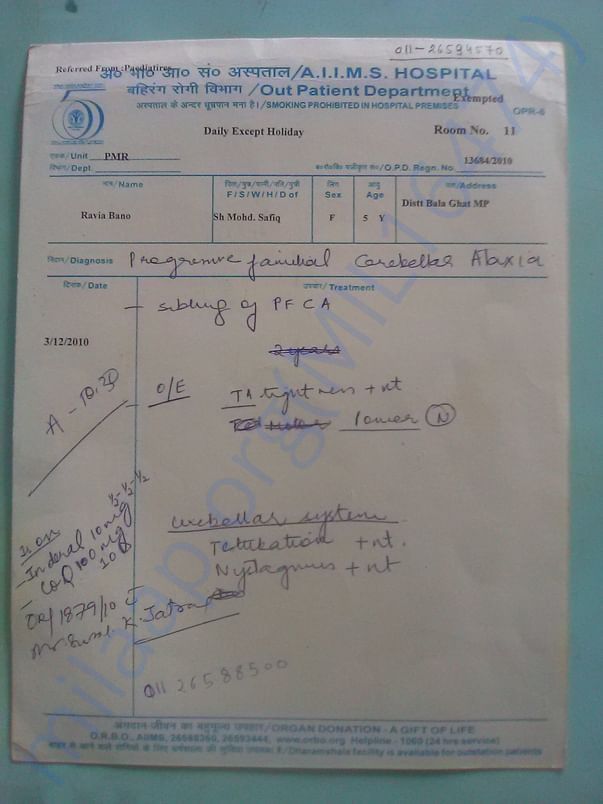 011-26594570
Referred From :Paediatircs
अ० भा० आ० सं० अस्पताल/A.I.I.M.S. HOSPITAL
बहिरंग रोगी विभाग /Out Patient Department
अस्पताल के अन्दर धूम्रपान मना है।/SMOKING PROHIBITED IN HOSPITAL PREMISES
Exempted
OPR-6
Daily Except Holiday
Room No. 11
एकक/Unit PMR
विभाग/Dept.
ब०रो०वि० पंजीकृत सं०/O.P.D. Regn. No. 13684/2010
नाम/Name
पिता/पुत्र/पत्नी/पति/पुत्री
F/S/W/H/D of
लिंग
Sex
आयु
Age
पता/Address
Ravia Bano
Sh Mohd. Safiq
F
5 Y
Distt Bala Ghat MP
निदान/Diagnosis Progressive familial Cerebellar Ataxia
दिनांक/Date
उपचार/Treatment
- sibling of PFCA
3/12/2010
2 years
A - 10.30
- O/E TA tightness + nt
Tone lower N
Is on
- Inderal 10 mg ½-½-½
- CoQ 100 mg
10
Cerebellar system
Titubation + nt.
Nystagmus + nt
OT/1879/10
K. Jatra
011 26588500
अंगदान-जीवन का बहुमूल्य उपहार/ORGAN DONATION - A GIFT OF LIFE
O.R.B.O., AIIMS, 26588360, 26593444, www.orbo.org Helpline - 1060 (24 hrs service)
बाहर से आने वाले रोगियों के लिए धर्मशाला की सुविधा उपलब्ध है/Dharamshala facility is available for outstation patients
milaap.org(MIL16474)